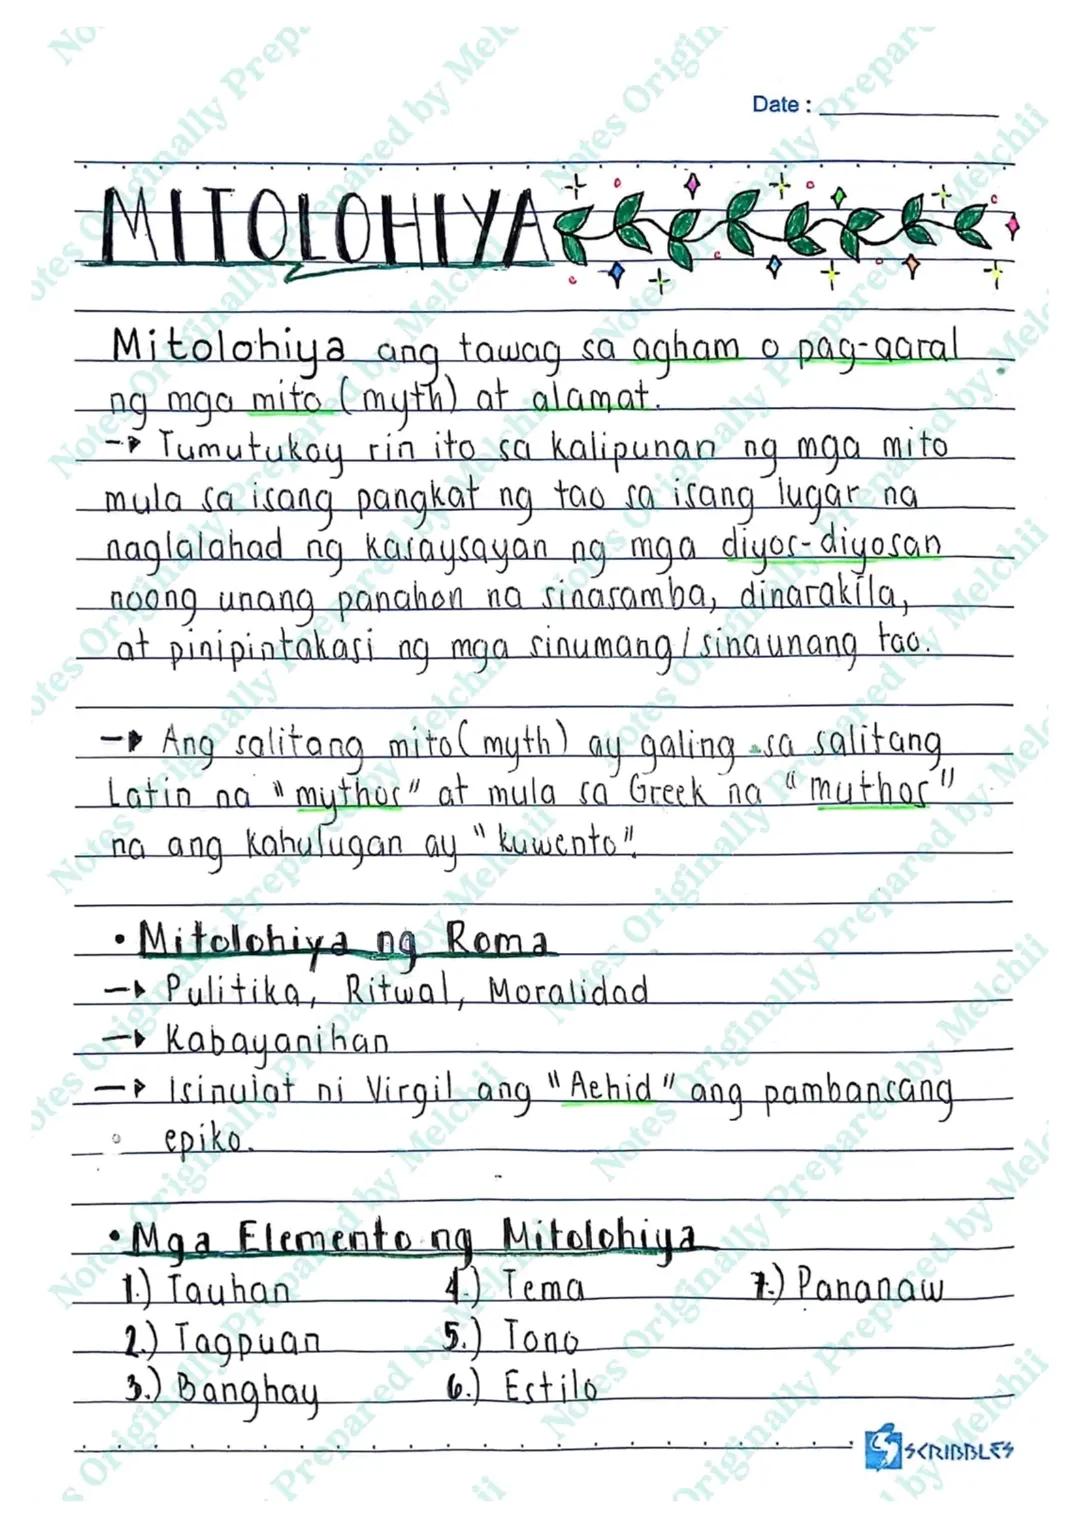 Date :
MITOLOHIYA
Mitolohiya ang tawag sa agham o pag-aaral
ng mga mito (myth) at alamat.
→ Tumutukoy rin ito sa kalipunan ng mga mito
mula sa isang pangkat ng tao sa isang lugar na
naglalahad ng kasaysayan ng mga diyos-diyosan
noong unang panahon na sinasamba, dinarakila,
at pinipintakasi ng mga sinumang/sinaunang tao.
→ Ang salitang mito(myth) ay galing sa salitang
Latin na "mythos" at mula sa Greek na "muthos"
na ang kahulugan ay "kuwento".
• Mitolohiya ng Roma
→ Pulitika, Ritwal, Moralidad
→ Kabayanihan
→ Isinulat ni Virgil ang "Aehid" ang pambansang
epiko.
• Mga Elemento ng Mitolohiya
1.) Tauhan 4.) Tema 7.) Pananaw
2.) Tagpuan 5.) Tono
3.) Banghay 6.) Estilo
SCRIBBLES
Notes Originally Prepared by Melchii